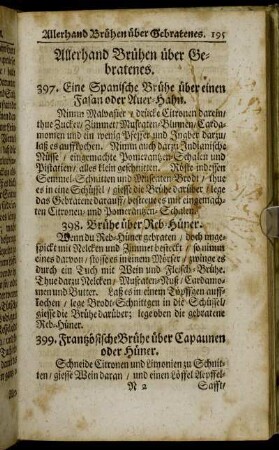 Allerhand Brühen über Gebratenes. 195
Allerhand Brühen über Ge-
bratenes.
397. Eine Spanische Brühe über einen
Fasan oder Auer-Hahn.
Nimm Malvasier / drücke Citronen darein/
thue Zucker/ Zimmet/ Muscaten/ Blumen/ Carda-
momen und ein wenig Pfeffer und Ingber darzu/
laß es auffkochen. Nimm auch darzu Indianische
Nüsse / eingemachte Pomerantzen-Schalen und
Pistacien/ alles klein geschnitten. Röste indessen
Semmel-Schnitten und Brodt / thue
es in eine Schüssel / giesse die Brühe darüber / lege
das Gebratene darauff/ bestreue es mit eingemach-
ten Citronen/ und Pomerantzen-Schalen.
398. Brühe über Reb-Hüner.
Wenn du Reb-Hüner gebraten / doch unge-
spickt mit Nelcken und Zimmet besteckt / so nimm
eines davon/ stosse es in einem Mörser / zwinge es
durch ein Tuch mit Wein und Fleisch-Brühe.
Thue darzu Nelcken / Muscaten-Nuß / Cardamo-
men und Butter. Laß es in einem Töpffgen auff-
kochen / lege Brodt-Schnittgen in die Schüssel
giesse die Brühe darüber; lege oben die gebratene
Reb-Hüner.
399. Französische Brühe über Capaunen
oder Hüner.
Schneide Citronen und Limonien zu Schnit-
ten / giesse Wein daran / und einen Löffel Aepffel-
N 2 Safft/